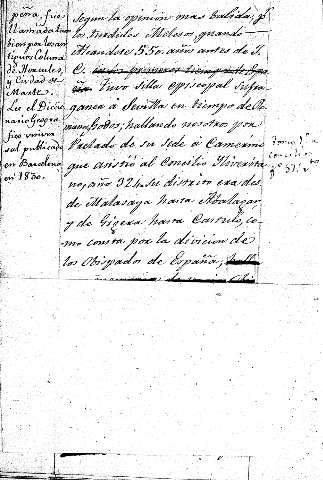 peña, fue
llamada tam
bien por los an
tiguos Coluna
de Hercules,
y Ciudad de
Marte.
Lee el Diccio
nario Geogra
fico univer
sal publicado
en Barcelona
en 1830.
Segun la opinion mas balida, p.r
los turdulos Melesos, quando
550. años antes de J.
C.
Tuvo Silla episcopal Sufra
ganea à Sevilla en tiempo de Ro
manos, Godos; hallando nosotros por
Prelado de su Sede à Camerino
que asistiò al Concilio Iliverita
no, año 324. Su distrito era des
de Malasaya hasta
y de Gigera hasta Castulo, co
mo consta por la division de
los Obispados de España;
tomo 1.º
concilios